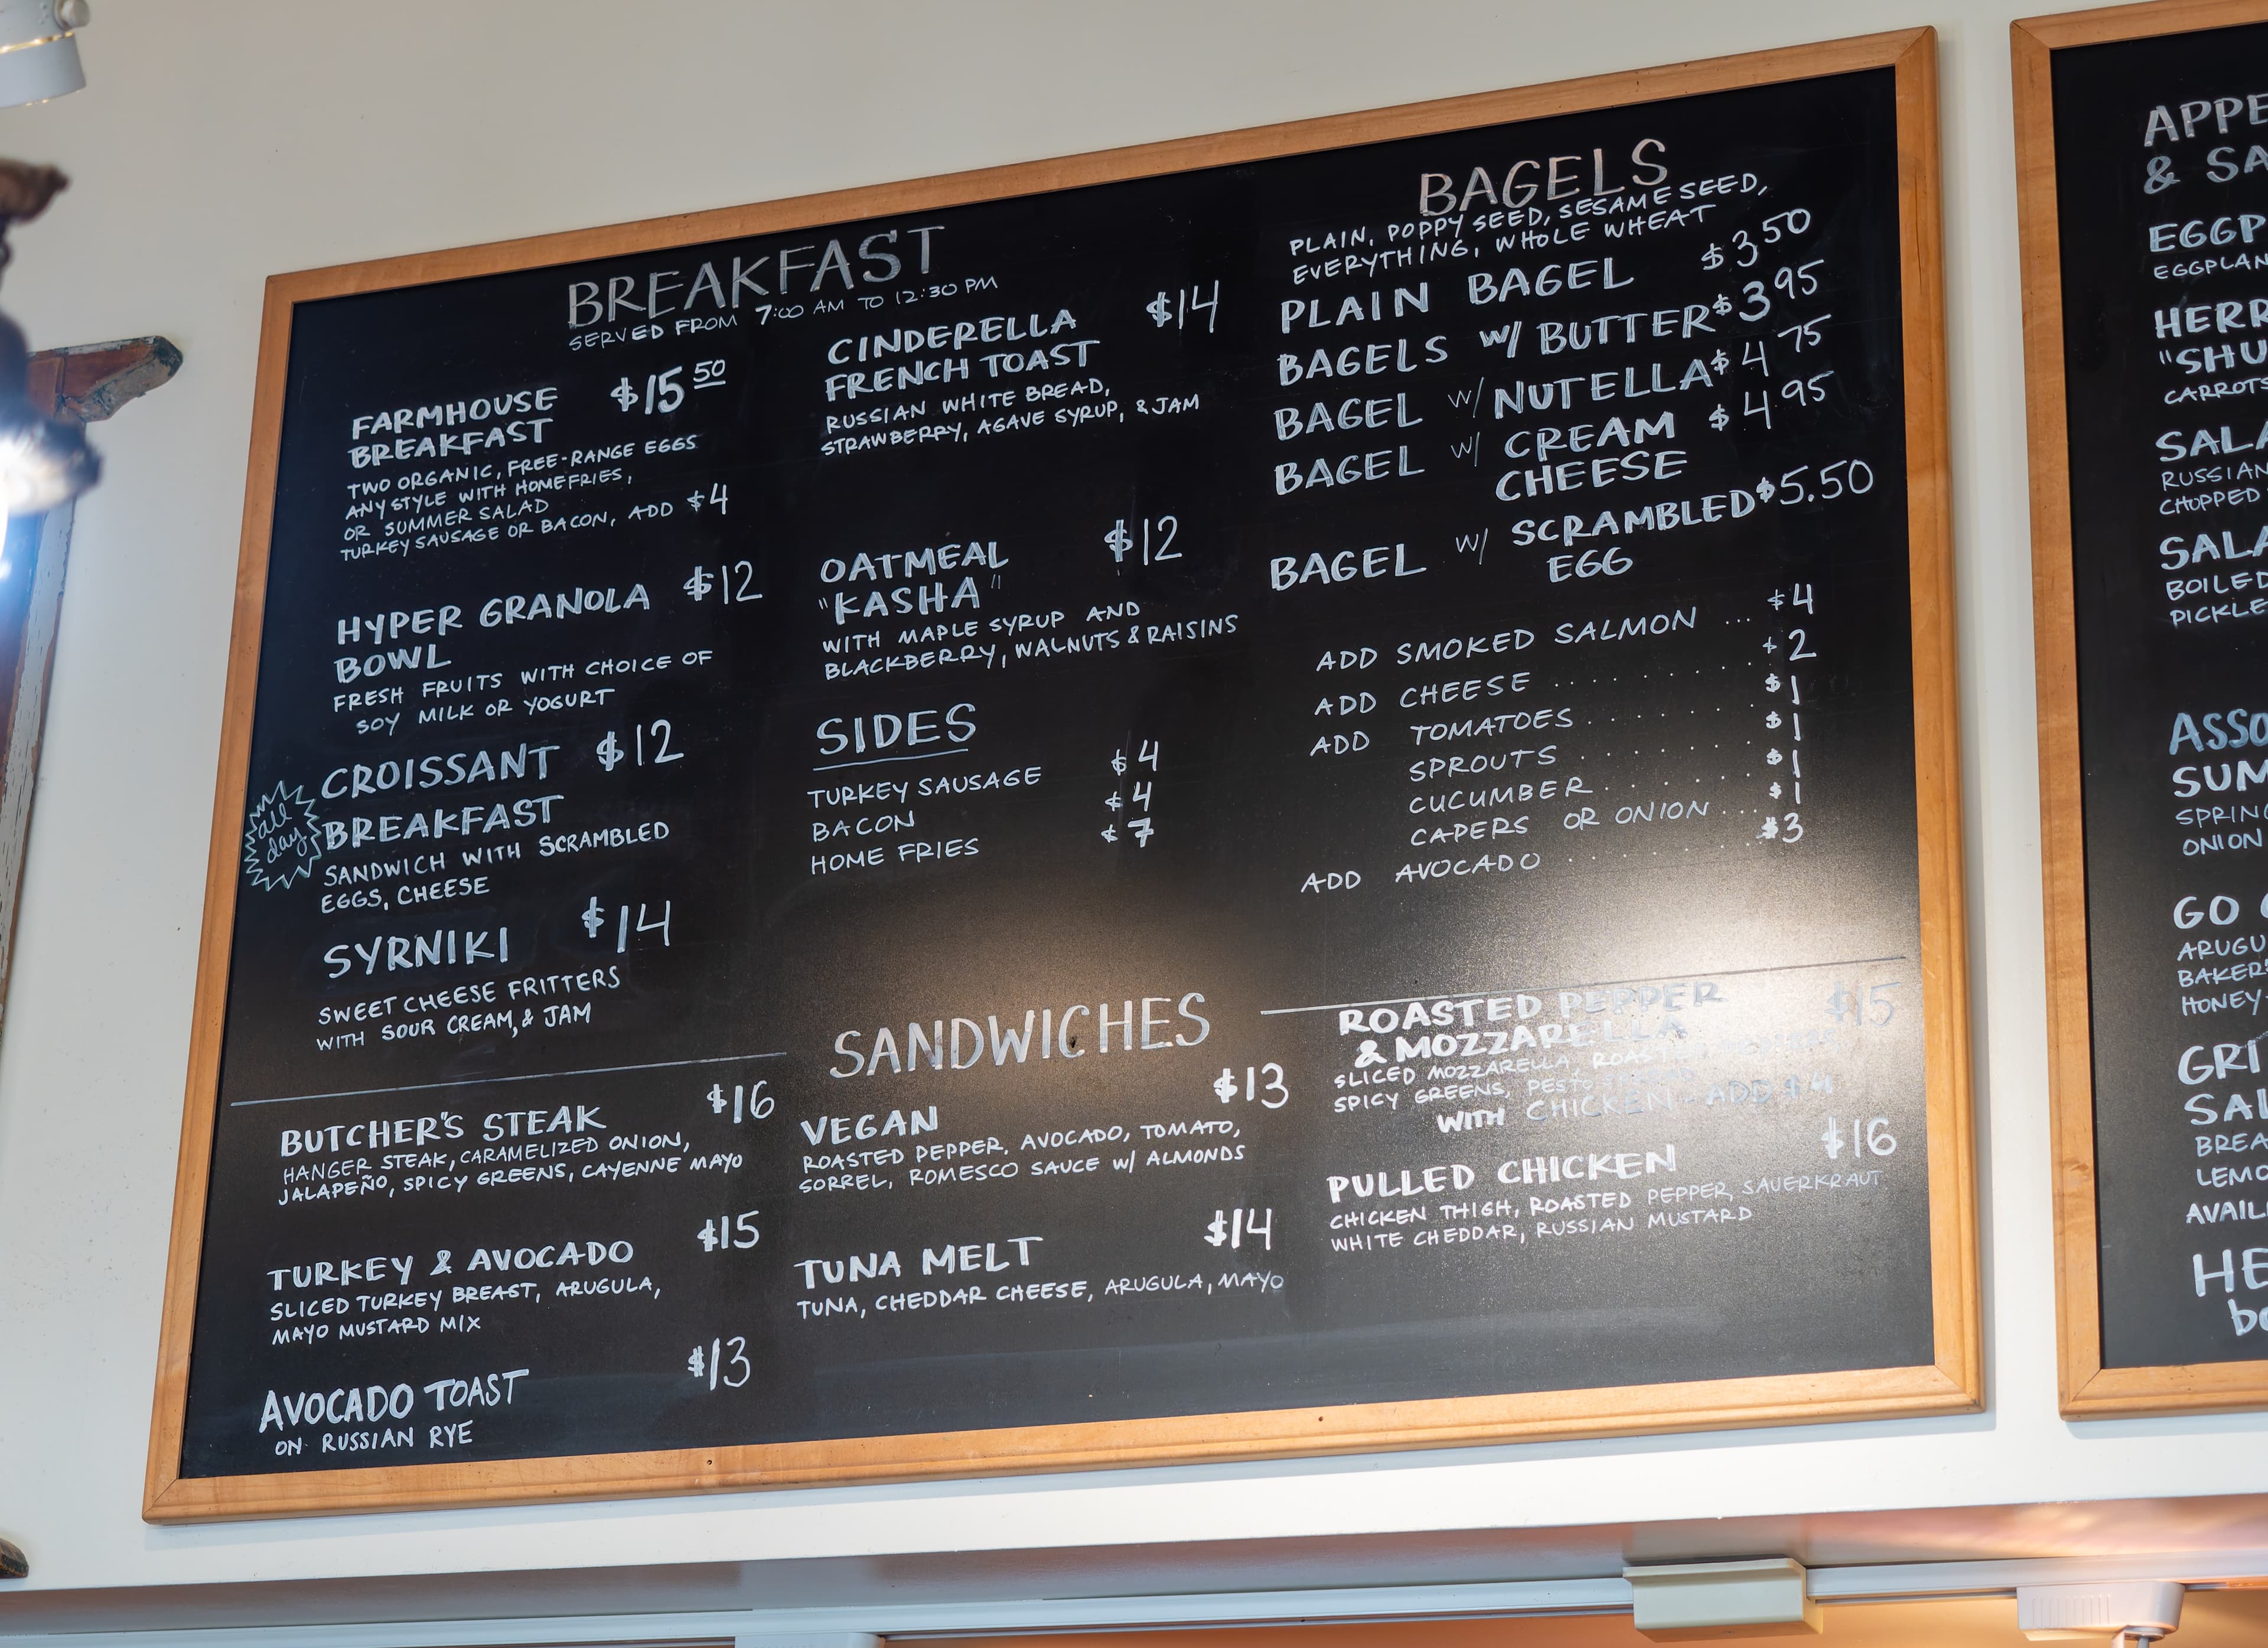 BREAKFAST
SERVED FROM 7:00 AM TO 12:30 PM
FARMHOUSE $15 50
BREAKFAST
TWO ORGANIC, FREE-RANGE EGGS
ANY STYLE WITH HOMEFRIES,
OR SUMMER SALAD
TURKEY SAUSAGE OR BACON, ADD $4
HYPER GRANOLA $12
BOWL
FRESH FRUITS WITH CHOICE OF
SOY MILK OR YOGURT
all
day
CROISSANT $12
BREAKFAST
SANDWICH WITH SCRAMBLED
EGGS, CHEESE
SYRNIKI $14
SWEET CHEESE FRITTERS
WITH SOUR CREAM, & JAM
CINDERELLA $14
FRENCH TOAST
RUSSIAN WHITE BREAD,
STRAWBERRY, AGAVE SYRUP, & JAM
OATMEAL $12
"KASHA"
WITH MAPLE SYRUP AND
BLACKBERRY, WALNUTS & RAISINS
SIDES
TURKEY SAUSAGE $4
BACON $4
HOME FRIES $7
BAGELS
PLAIN, POPPY SEED, SESAME SEED,
EVERYTHING, WHOLE WHEAT
PLAIN BAGEL $3.50
BAGELS W/ BUTTER $3.95
BAGEL W/ NUTELLA $4.75
BAGEL W/ CREAM $4.95
CHEESE
BAGEL W/ SCRAMBLED $5.50
EGG
ADD SMOKED SALMON ... $4
ADD CHEESE ........ $2
ADD TOMATOES ....... $1
SPROUTS ........ $1
CUCUMBER ....... $1
CAPERS OR ONION ... $1
ADD AVOCADO .......... $3
SANDWICHES
BUTCHER'S STEAK $16
HANGER STEAK, CARAMELIZED ONION,
JALAPEÑO, SPICY GREENS, CAYENNE MAYO
TURKEY & AVOCADO $15
SLICED TURKEY BREAST, ARUGULA,
MAYO MUSTARD MIX
AVOCADO TOAST $13
ON RUSSIAN RYE
VEGAN $13
ROASTED PEPPER, AVOCADO, TOMATO,
SORREL, ROMESCO SAUCE W/ ALMONDS
TUNA MELT $14
TUNA, CHEDDAR CHEESE, ARUGULA, MAYO
ROASTED PEPPER $15
& MOZZARELLA
SLICED MOZZARELLA, ROASTED
SPICY GREENS, PESTO
WITH CHICKEN - ADD $4
PULLED CHICKEN $16
CHICKEN THIGH, ROASTED PEPPER, SAUERKRAUT
WHITE CHEDDAR, RUSSIAN MUSTARD
APPE
& SA
EGGP
EGGPLAN
HERR
"SHU
CARROTS
SALA
RUSSIAN
CHOPPED
SALA
BOILED
PICKLE
ASSO
SUM
SPRIN
ONION
GO
ARUGU
BAKER'S
HONEY
GRI
SAL
BREA
LEMO
AVAIL
HE
be